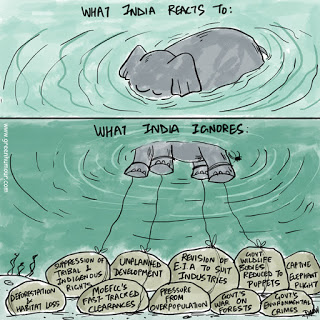 WHAT INDIA REACTS TO:
www.greenhumour.com
WHAT INDIA IGNORES:
DEFORESTATION
& HABITAT LOSS
SUPPRESSION OF
TRIBAL &
INDIGENOUS
RIGHTS
MOEFCC'S
FAST-TRACKED
CLEARANCES
UNPLANNED
DEVELOPMENT
PRESSURE
FROM
OVERPOPULATION
REVISION OF
E.I.A TO SUIT
INDUSTRIES
GOVT'S
WAR ON
FORESTS
GOVT
WILDLIFE
BODIES
REDUCED TO
PUPPETS
GOVT'S
ENVIRONMENTAL
CRIMES
CAPTIVE
ELEPHANT
PLIGHT